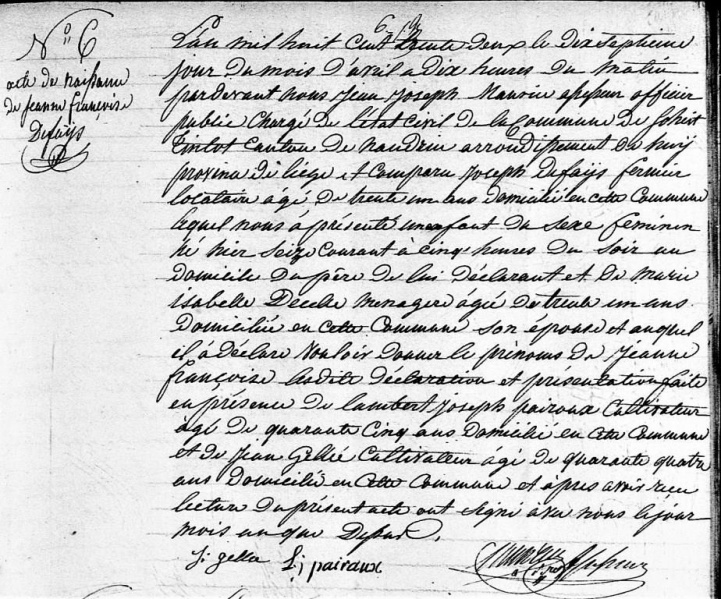 N° 6
acte de naissance
de Jeanne françoise
Defays
L'an mil huit Cent trente deux le dix septieme
jour du mois D'avril a Dix heures Du Matin
pardevant nous Jean Joseph assesseur officier
public Chargé De l'état Civil de la Commune De
tinlot Canton de nandrin arrondissement de huy
province De liege et Comparu Joseph Defays fermier
locataire agé De trente un ans domicilié en cette Commune
lequel nous à présenté un enfant du Sexe feminin
né hier Seize Courant à Cinq heures Du Soir au
domicile Du père De lui déclarant et De Marie
isabelle menagere agée De trente un ans
Domiciliée en Cette Commune Son épouse et auquel
il à déclaré Vouloir Donner le prénoms De Jeanne
françoise déclaration et présentation faite
en présence De lambert Joseph pairoux Cultivateur
àgé De quarante Cinq ans Domicilié en Cette Commune
et De Jean Cultivateur àgé De quarante quatre
ans Domicilié en Cette Commune et après avoir
lecture Du présent acte ont Signé avec nous le jour
mois an que Dessus.
L j pairoux